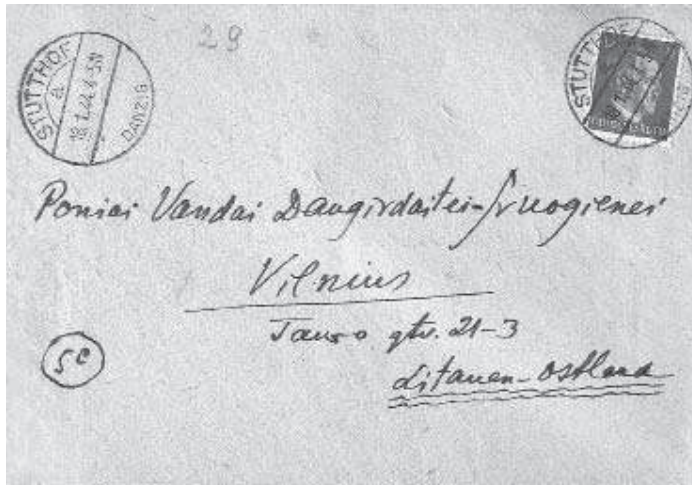 29
STUTTHOF
a
18.1.44.4-5N
DANZIG
STUTTHOF
Poniai Vandai Daugirdaitei-Sruogienei
Vilnius
Tauro gtv. 21-3
5e
Litauen-Ostland